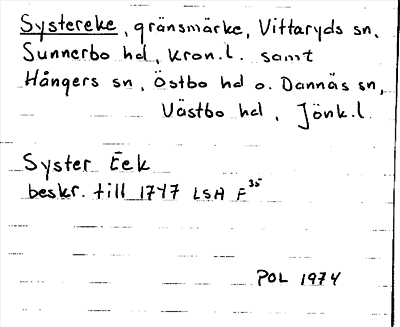 Systereke, gränsmärke, Vittaryds sn,
Sunnerbo hd, Kron.l. samt
Hångers sn, Östbo hd o. Dannäs sn,
Västbo hd, Jönk.l.
Syster Eek
beskr. till 1747 LSA F35
POL 1974